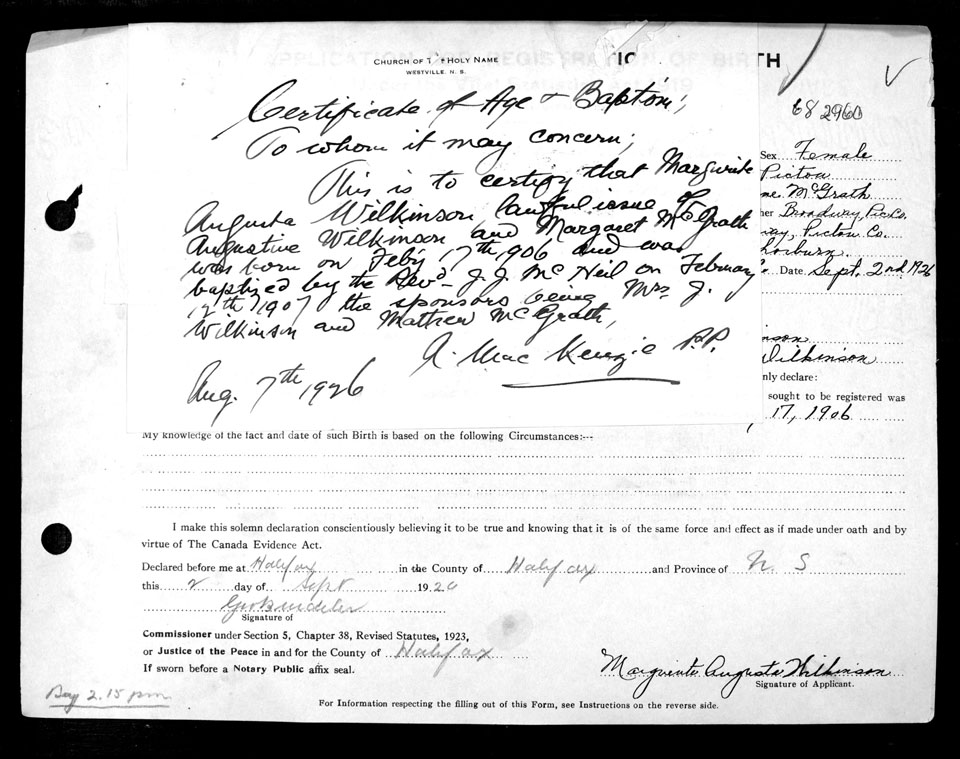 CHURCH OF THE HOLY NAME
WESTVILLE, N. S.
TH
68 2960
Certificate of Age & Baptism;
To whom it may concern;
This is to certify that Marguirite
Augusta Wilkinson lawful issue of
Augustine Wilkinson and Margaret McGrath
was born on Feby 17th 1906 and was
baptized by the Revd. J. J. McNeil on February
17th 1907 the sponsors being Mrs J.
Wilkinson and Mathew McGrath,
A. MacKenzie P.P.
Aug. 7th, 1926
Sex Female
Pictou
me McGrath
her Broadway Pict Co.
ay, Pictou Co.
horburn
Date Sept. 2nd 1926
inson
Wilkinson
nly declare:
sought to be registered was
17, 1906
My knowledge of the fact and date of such Birth is based on the following Circumstances:--
I make this solemn declaration conscientiously believing it to be true and knowing that it is of the same force and effect as if made under oath and by
virtue of The Canada Evidence Act.
Declared before me at Halifax in the County of Halifax and Province of N. S
this 2 day of Sept 1926
Signature of
Commissioner under Section 5, Chapter 38, Revised Statutes, 1923,
or Justice of the Peace in and for the County of Halifax
If sworn before a Notary Public affix seal.
Marguirite Augusta Wilkinson
Signature of Applicant.
2.15 pm
For Information respecting the filling out of this Form, see Instructions on the reverse side.